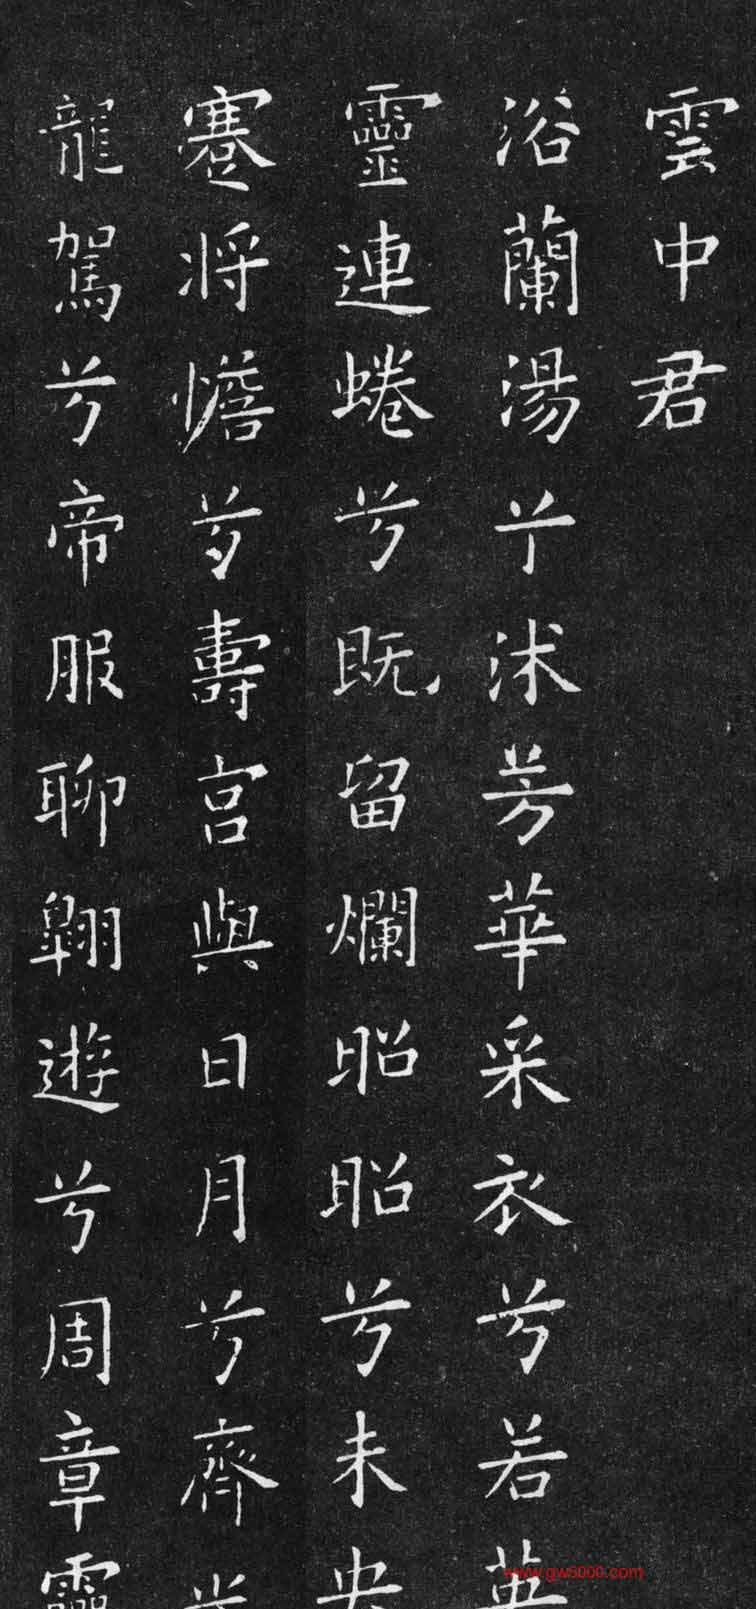 雲中君
浴蘭湯兮沐芳華采衣兮若英
靈連蜷兮既留爛昭昭兮未央
蹇将憺兮壽宮與日月兮齊光
龍駕兮帝服聊翺遊兮周章靈
www.gw5000.com